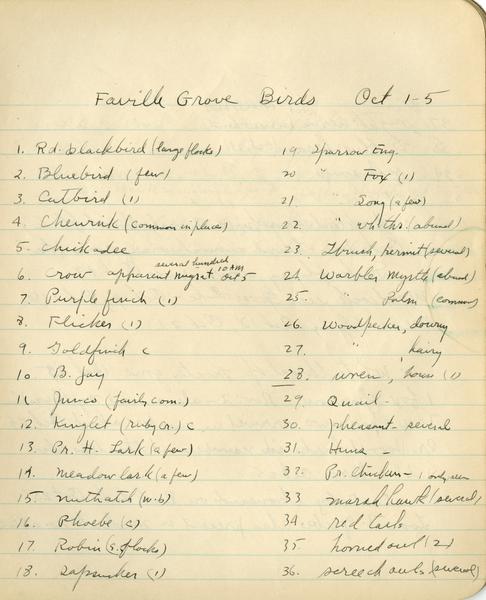 Faville Grove Birds Oct 1-5
1. Rd. blackbird (large flocks)
2. Bluebird (few)
3. Catbird (1)
4. Chewink (common in places)
5. Chickadee
several hundred
6. Crow apparent migrat. 10 AM Oct 5
7. Purple finch (1)
8. Flicker (1)
9. Goldfinch c
10 B. Jay
11 Junco (fairly com.)
12. Kinglet (ruby cr.) c
13. Pr. H. Lark (a few)
14. meadowlark (a few)
15. nuthatch (w.b)
16. Phoebe (2)
17. Robin (s. flocks)
18. Sapsucker (1)
19 Sparrow Eng.
20 " Fox (1)
21. " Song (a few)
22. " wh. thr. (abund)
23. Thrush, hermit (several)
24. Warbler Myrtle (abund)
25. " Palm (common)
26. Woodpecker, downy
27. " hairy
28. wren, house (1)
29. Quail -
30. pheasant - several
31. Huns -
32. Pr. Chicken - 1 only seen
33 marsh hawk (several)
34 red tail
35 horned owl (2)
36. screech owls (several)